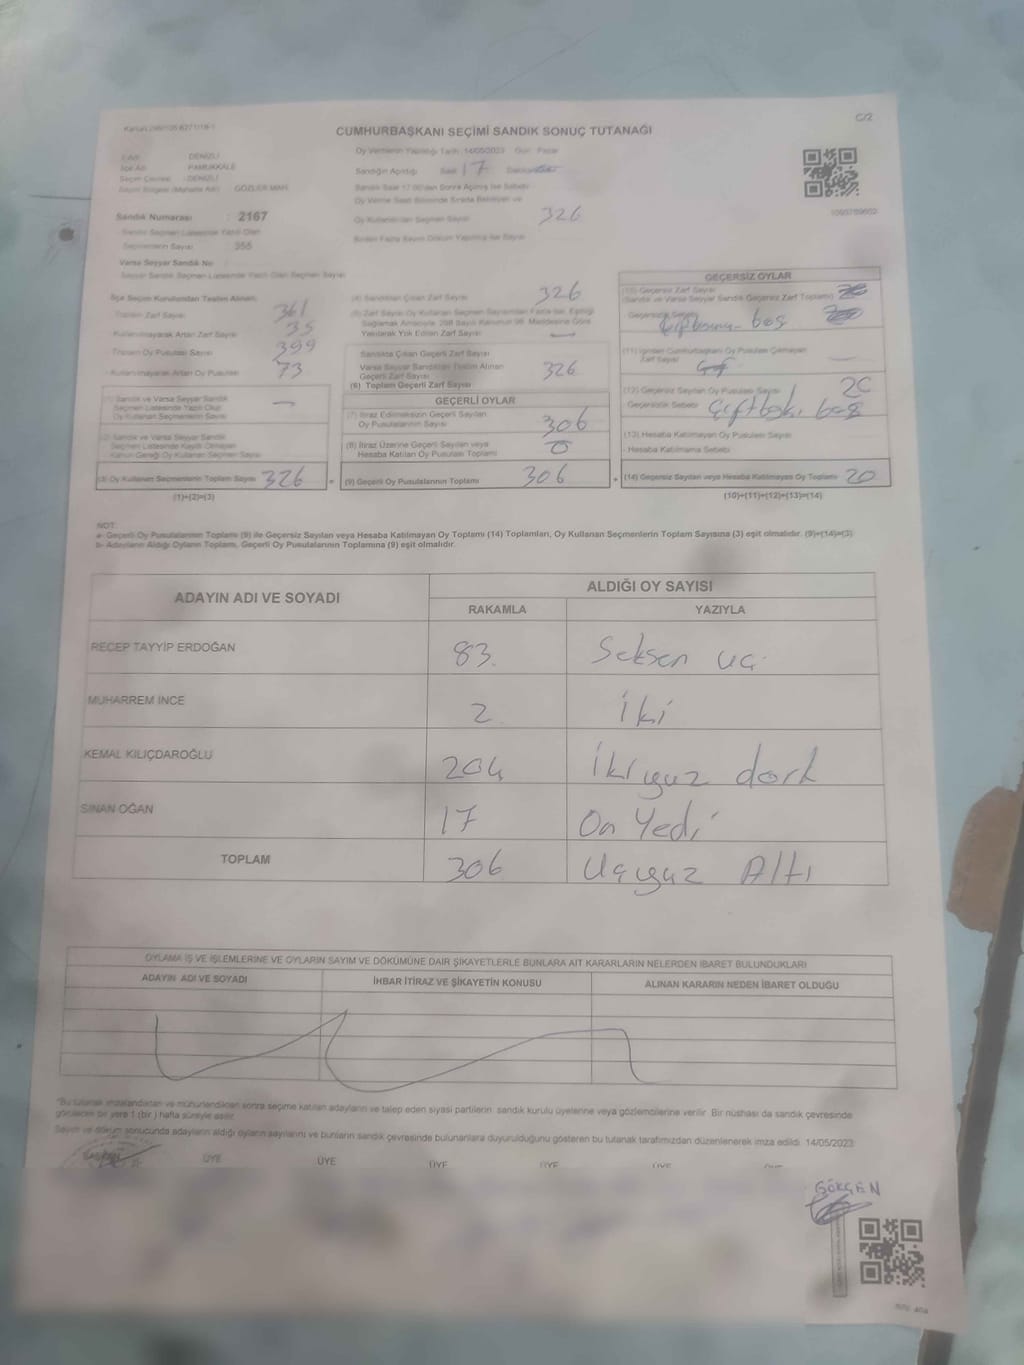 C/2
CUMHURBAŞKANI SEÇİMİ SANDIK SONUÇ TUTANAĞI
İli Adı : DENİZLİ
İlçe Adı : PAMUKKALE
Seçim Çevresi : DENİZLİ
GÖZLER MAH.
Oy Vermenin Yapıldığı Tarih: 14/05/2023 Gün: Pazar
Sandığın Açıldığı Saat 17
Sandık Numarası : 2167
Sandık Seçmen Listesinde Yazılı Olan
Seçmenlerin Sayısı : 355
Oy Kullandırılan Seçmen Sayısı 326
Varsa Seyyar Sandık No
Seyyar Sandık Seçmen Listesinde Yazılı Olan Seçmen Sayısı
İlçe Seçim Kurulundan Teslim Alınan;
Toplam Zarf Sayısı 361
Kullanılmayarak Artan Zarf Sayısı 35
Toplam Oy Pusulası Sayısı 399
Kullanılmayarak Artan Oy Pusulası 73
(1) Sandık ve Varsa Seyyar Sandık
Seçmen Listesinde Yazılı Olup
Oy Kullanan Seçmenlerin Sayısı —
(2) Sandık ve Varsa Seyyar Sandık
Seçmen Listesinde Kayıtlı Olmayan
Kanun Gereği Oy Kullanan Seçmen Sayısı
(3) Oy Kullanan Seçmenlerin Toplam Sayısı 326
(1)+(2)=(3)
(4) Sandıktan Çıkan Zarf Sayısı 326
Sandıkta Çıkan Geçerli Zarf Sayısı
Varsa Seyyar Sandıktan Teslim Alınan
Geçerli Zarf Sayısı
(6) Toplam Geçerli Zarf Sayısı 326
GEÇERLİ OYLAR
(7) İtiraz Edilmeksizin Geçerli Sayılan
Oy Pusulasının Sayısı 306
(8) İtiraz Üzerine Geçerli Sayılan veya
Hesaba Katılan Oy Pusulası Toplamı 0
(9) Geçerli Oy Pusulalarının Toplamı 306
GEÇERSİZ OYLAR
(10) Geçersiz Zarf Sayısı
(Sandık ve Varsa Seyyar Sandık Geçersiz Zarf Toplamı)
Geçersizlik Sebebi boş
(11) İçinden Cumhurbaşkanı Oy Pusulası Çıkmayan
Zarf Sayısı —
(12) Geçersiz Sayılan Oy Pusulası Sayısı 20
Geçersizlik Sebebi boş
(13) Hesaba Katılmayan Oy Pusulası Sayısı
Hesaba Katılmama Sebebi
(14) Geçersiz Sayılan veya Hesaba Katılmayan Oy Toplamı 20
(10)+(11)+(12)+(13)=(14)
NOT:
a- Geçerli Oy Pusulalarının Toplamı (9) ile Geçersiz Sayılan veya Hesaba Katılmayan Oy Toplamı (14) Toplamları, Oy Kullanan Seçmenlerin Toplam Sayısına (3) eşit olmalıdır. (9)+(14)=(3)
b- Adayların Aldığı Oyların Toplamı, Geçerli Oy Pusulalarının Toplamına (9) eşit olmalıdır.
ADAYIN ADI VE SOYADI
ALDIĞI OY SAYISI
RAKAMLA YAZIYLA
RECEP TAYYİP ERDOĞAN 83. Seksen üç.
MUHARREM İNCE 2 İki
KEMAL KILIÇDAROĞLU 204 İkiyüz dört
SİNAN OĞAN 17 On Yedi
TOPLAM 306 Üçyüz Altı
OYLAMA İŞ VE İŞLEMLERİNE VE OYLARIN SAYIM VE DÖKÜMÜNE DAİR ŞİKAYETLERLE BUNLARA AİT KARARLARIN NELERDEN İBARET BULUNDUKLARI
ADAYIN ADI VE SOYADI İHBAR İTİRAZ VE ŞİKAYETİN KONUSU ALINAN KARARIN NEDEN İBARET OLDUĞU
"Bu tutanak imzalandıktan ve mühürlendikten sonra seçime katılan adayların ve talep eden siyasi partilerin sandık kurulu üyelerine veya gözlemcilerine verilir. Bir nüshası da sandık çevresinde
görülecek bir yere 1 (bir) hafta süreyle asılır.
Sayım ve döküm sonucunda adayların aldığı oyların sayılarını ve bunların sandık çevresinde bulunanlara duyurulduğunu gösteren bu tutanak tarafımızdan düzenlenerek imza edildi. 14/05/2023
BAŞKAN ÜYE ÜYE ÜYE ÜYE ÜYE
GÖKÇEN